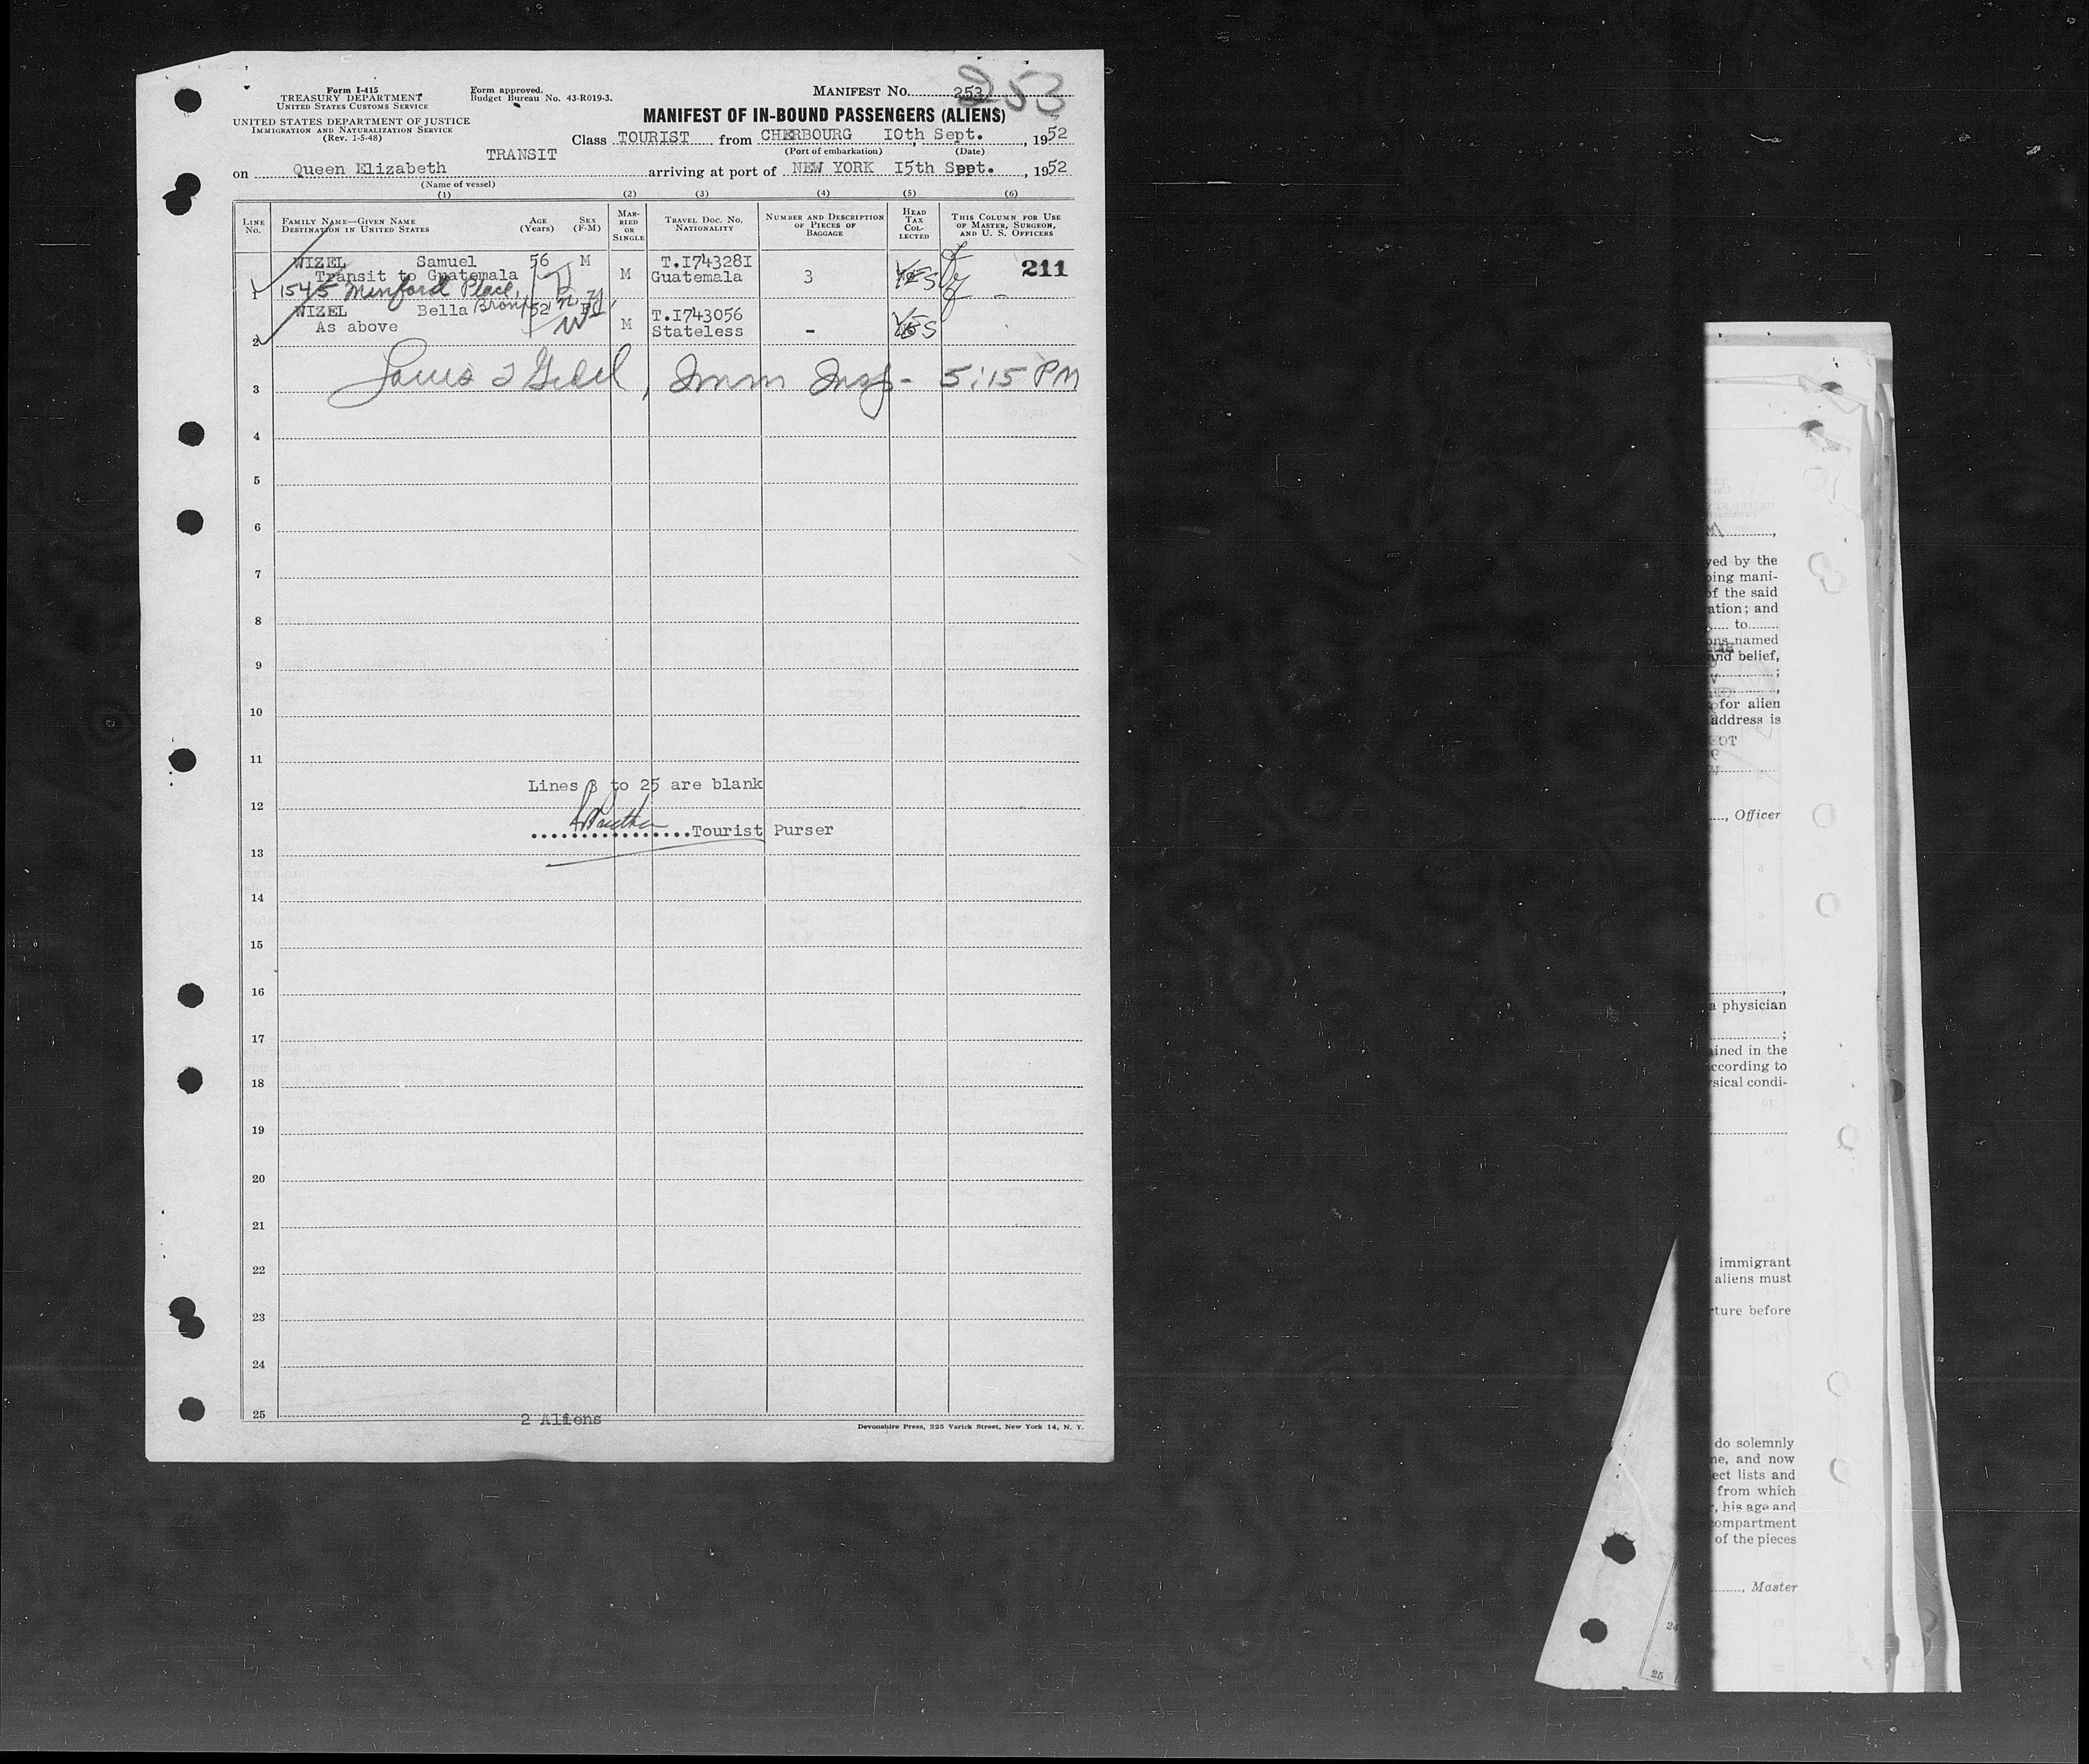 Form I-415
TREASURY DEPARTMENT
UNITED STATES CUSTOMS SERVICE
UNITED STATES DEPARTMENT OF JUSTICE
IMMIGRATION AND NATURALIZATION SERVICE
(Rev. 1-5-48)
Form approved.
Budget Bureau No. 43-R019-3.
MANIFEST NO. 253
253
MANIFEST OF IN-BOUND PASSENGERS (ALIENS)
Class TOURIST from CHERBOURG I0th Sept., 1952
(Port of embarkation) (Date)
TRANSIT
on Queen Elizabeth arriving at port of NEW YORK I5th Sept., 1952
(Name of vessel)
(1) (2) (3) (4) (5) (6)
LINE NO. FAMILY NAME—GIVEN NAME DESTINATION IN UNITED STATES AGE (Years) SEX (F-M) MARRIED OR SINGLE TRAVEL DOC. NO. NATIONALITY NUMBER AND DESCRIPTION OF PIECES OF BAGGAGE HEAD TAX COLLECTED THIS COLUMN FOR USE OF MASTER, SURGEON, AND U. S. OFFICERS
WIZEL Samuel 56 M T.I74328I 211
Transit to Guatemala M Guatemala 3 YES
1 1545 Minford Place,
Bronx, N.Y.
WIZEL Bella 52 F T.I743056
As above M Stateless - YES
2
3 Imm Insp - 5:15 PM
4
5
6
7
8
9
10
11
Lines 3 to 25 are blank
12
Tourist Purser
13
14
15
16
17
18
19
20
21
22
23
24
25
2 Aliens
Devonshire Press, 225 Varick Street, New York 14, N. Y.
yed by the
oing mani-
of the said
ation; and
to
ons named
and belief,
;
,
for alien
address is
, Officer
,
a physician
;
ained in the
ccording to
sical condi-
immigrant
aliens must
ture before
do solemnly
ne, and now
ect lists and
from which
, his age and
compartment
of the pieces
, Master
24
25